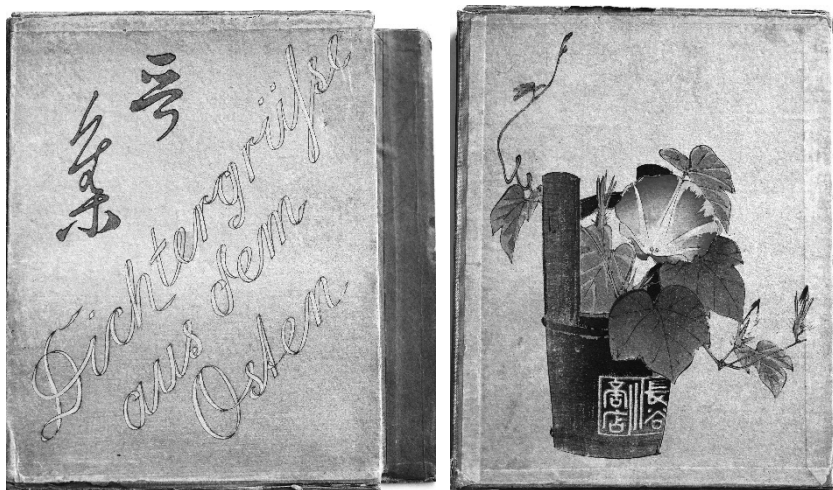 集
Dichtergrüſse
aus dem
Osten.
長谷
川
商店